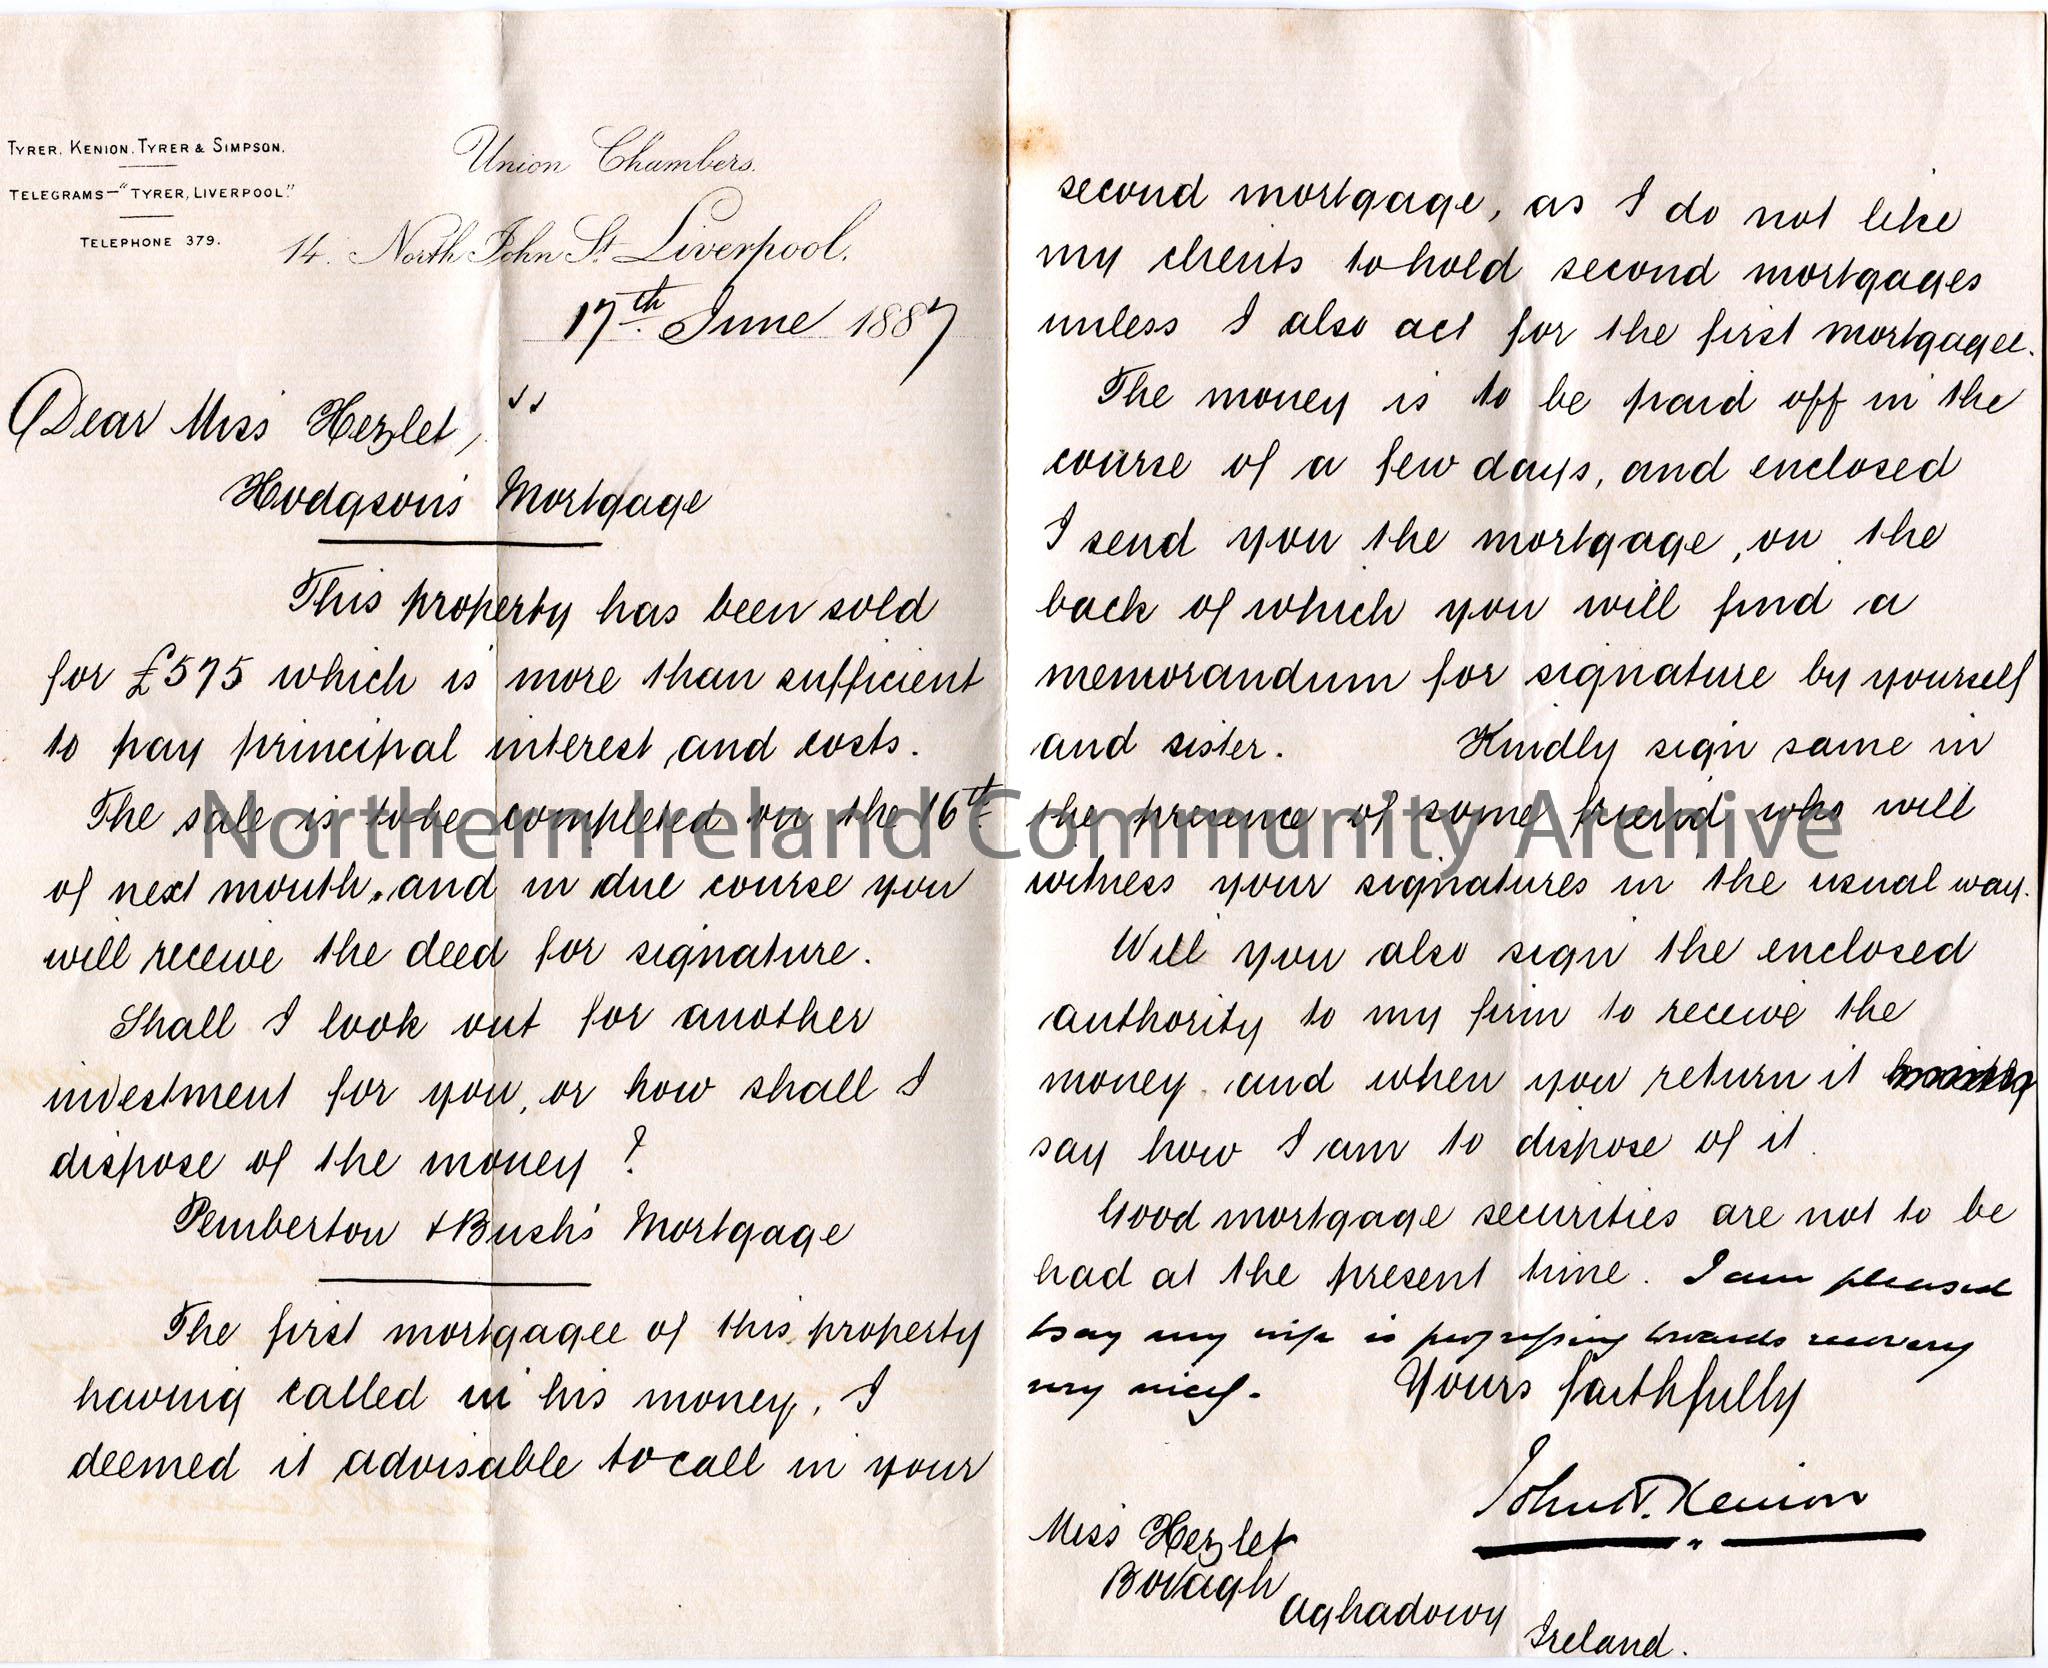 TYRER, KENION, TYRER & SIMPSON.
TELEGRAMS—"TYRER, LIVERPOOL."
TELEPHONE 379.
Union Chambers.
14. North John St. Liverpool.
17th June 1887
Dear Miss Hezlet,
Hodgson's Mortgage
This property has been sold
for £575 which is more than sufficient
to pay principal interest and costs.
The sale is to be completed on the 16th
of next month, and in due course you
will receive the deed for signature.
Shall I look out for another
investment for you, or how shall I
dispose of the money?
Pemberton & Bush's Mortgage
The first mortgagee of this property
having called in his money, I
deemed it advisable to call in your
second mortgage, as I do not like
my clients to hold second mortgages
unless I also act for the first mortgagee.
The money is to be paid off in the
course of a few days, and enclosed
I send you the mortgage, on the
back of which you will find a
memorandum for signature by yourself
and sister. Kindly sign same in
the presence of some friend who will
witness your signatures in the usual way.
Will you also sign the enclosed
authority to my firm to receive the
money and when you return it
say how I am to dispose of it.
Good mortgage securities are not to be
had at the present time. I am pleased
to say my wife is progressing towards recovery
very nicely.
Yours faithfully
John N. Kenion
Miss Hezlet
Bovagh
Aghadowy
Ireland.
Northern Ireland Community Archive